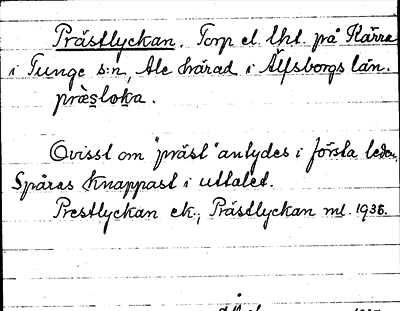 Prästlyckan. Torp el. lht. på Kärra
i Tunge s:n, Ale härad i Älfsborgs län.
præsloka.
Ovisst om "präst" antydes i första leden.
Spåras knappast i uttalet.
Prestlyckan ek.; Prästlyckan ml. 1935.